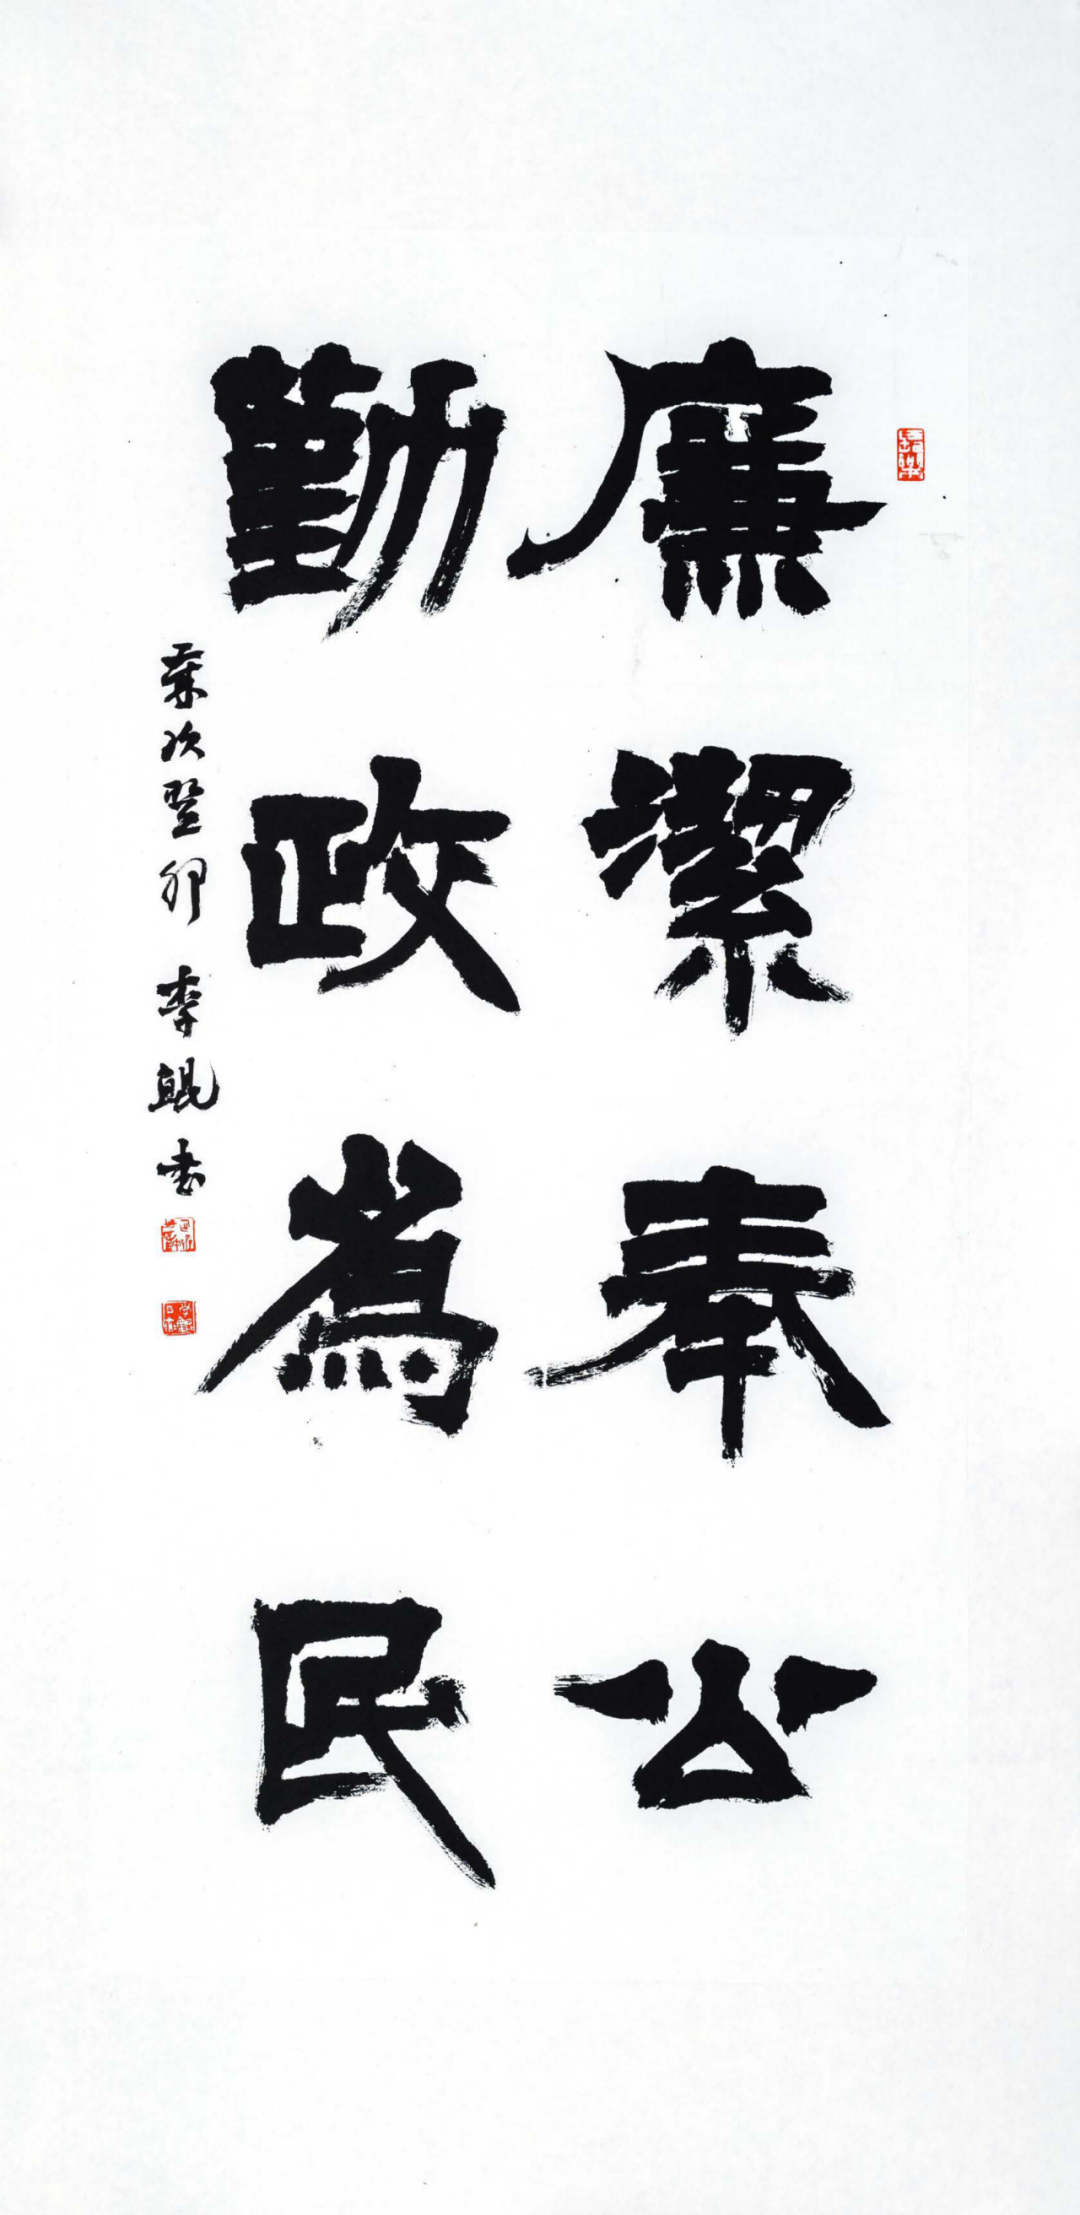 廉潔奉公
勤政為民
歲次癸卯 李鯤書